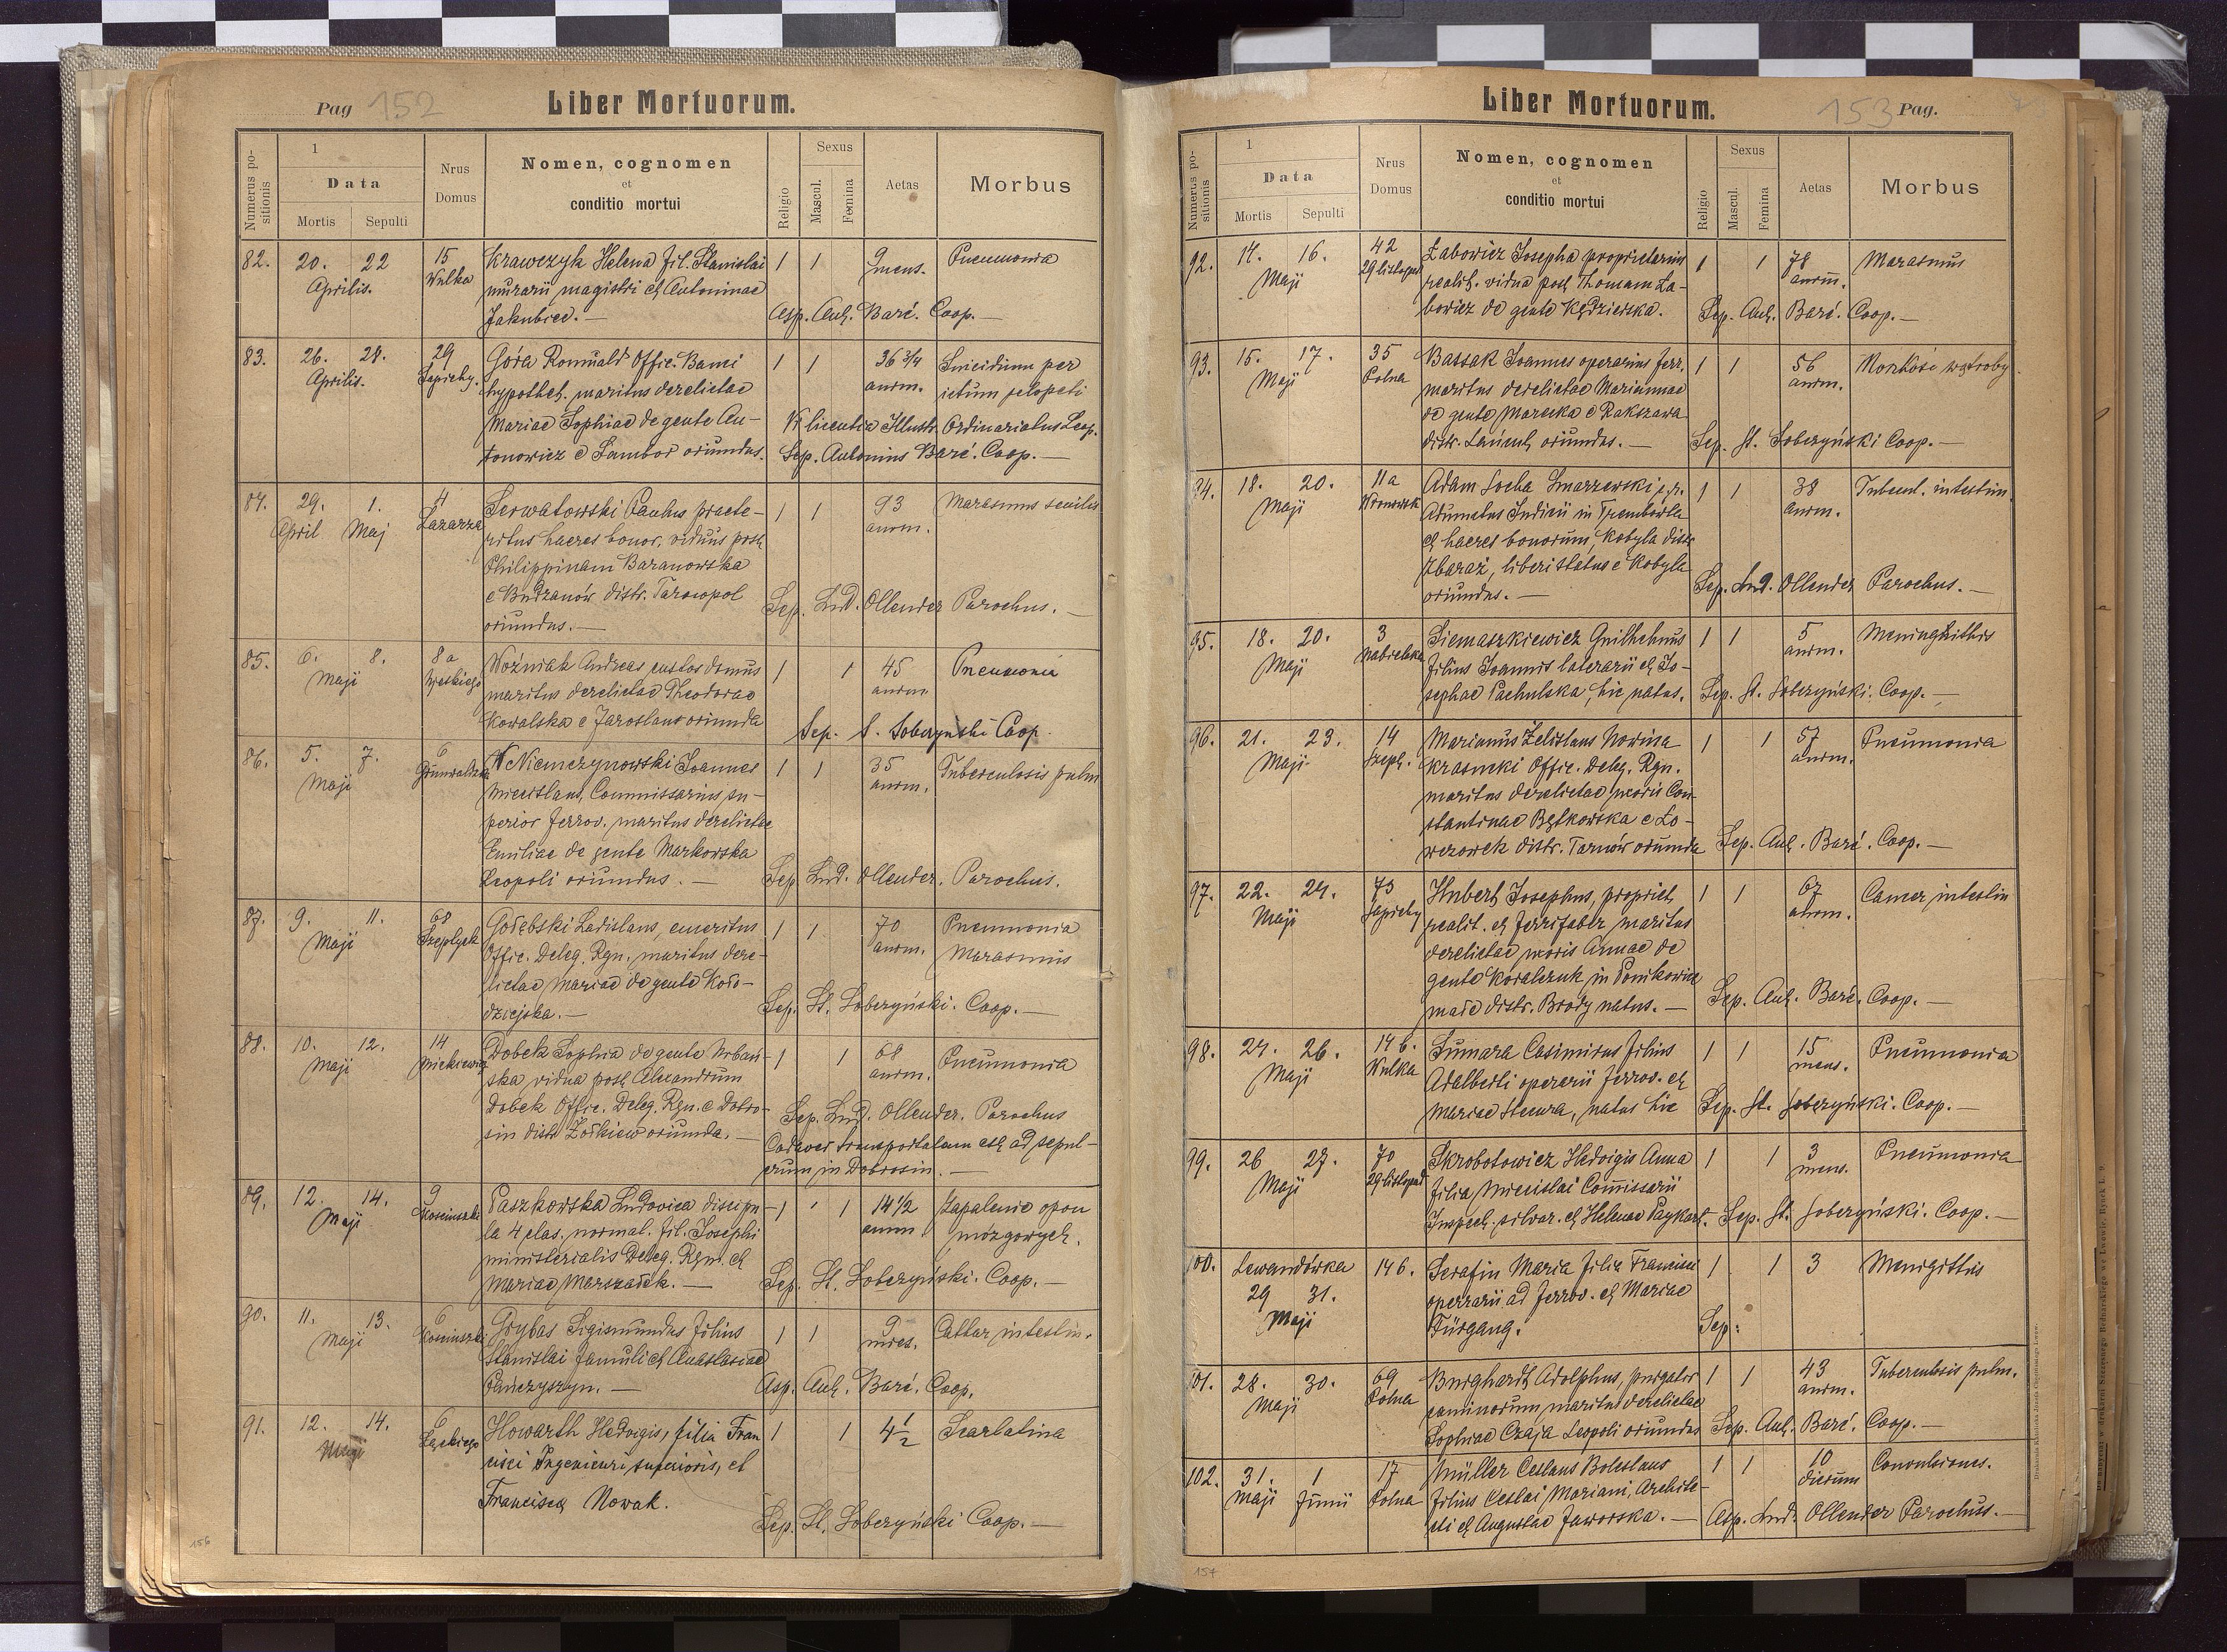 Pag 152
Liber Mortuorum.
Numerus positionis
1
Data
Mortis Sepulti
Nrus Domus
Nomen, cognomen
et
conditio mortui
Religio
Sexus
Mascul. Femina
Aetas
Morbus
82. 20. 22 15 Krawczyk Helena fil. Stanislai 1 1 9 Pneumonia
Aprilis. Wulka murarii magistri et Antoninae mens.
Jakubiec. — Asp. Ant. Barć. Coop. —
83. 26. 28. 29 Góra Romuald Offic. Banci 1 1 36 3/4 Suicidium per
Aprilis. Sapiehy. hypothet. maritus derelictae annm. ictum sclopeti
Mariae Sophiae de gente An- licentia Illustr. Ordinariatus Leop.
tonowicz e Sambor oriundus. Sep. Antonius Barć. Coop. —
84. 29. 1. 4 Serwatowski Paulus praete- 1 1 93 Marasmus senilis
April Maj Łazarza ritus haeres bonor. viduus post annm.
Philippinam Baranowska
e Budzanów distr. Tarnopol Sep. Lud. Ollender Parochus. —
oriundus. —
85. 6. 8. 8a Woźniak Andreas, custos domus 1 1 45 Pneumonia
Maji maritus derelictae Theodorae annm
Kowalska e Jaroslau oriunda Sep. S. Soberzyński Coop.
86. 5. 7. 6 Niemczynowski Joannes 1 1 35 Tuberculosis pulm
Maji Grunwaldzka Miecislaus, Commissarius su- annm.
perior ferrov. maritus derelictae
Emiliae de gente Markowska
Leopoli oriundus. — Sep. Lud. Ollender. Parochus.
87. 9. 11. 68 Gołębski Ladislaus, emeritus 1 1 70 Pneumonia
Maji Szeptyck Offic. Deleg. Rgn. maritus dere- annm. Marasmus
lictae Mariae de gente Koło-
dziejska. — Sep. St. Soberzyński. Coop. —
88. 10. 12. 14 Dobek Sophia de gente Urbań- 1 1 68 Pneumonia
Maji Mickiewicz ska vidua post Alexandrum annm.
Dobek Offic. Deleg. Rgn. e Dobro- Sep. Lud. Ollender. Parochus
sin distr Żółkiew oriunda. — Cadaver transportatum est ad sepul-
crum in Dobrosin. —
89. 12. 14. 9 Paszkowska Ludovica discipu- 1 1 14 1/2 Zapalenie opon
Maji Kosciuszki la 4 clas. normal. fil. Josephi annm mózgowych.
ministerialis Deleg. Rgn. et
Mariae Marszałek. — Sep. St. Soberzyński. Coop. —
90. 11. 13. 6 Grybas Sigismundus filius 1 1 9 Cattar intestin.
Maji Kosciuszki Stanislai famuli et Anastasiae mens.
Pańczyszyn. — Asp. Ant. Barć. Coop.
91. 12. 14. 6 Howarth Hedvigis, filia Fran 1 1 4 1/2 Scarlatina
Maji Łąckiego cisci Ingenieuri superioris, et
Francisca Nowak.
Sep. St. Soberzyński Coop. —
156
Liber Mortuorum.
153 Pag.
Numerus positionis
1
Data
Mortis Sepulti
Nrus Domus
Nomen, cognomen
et
conditio mortui
Religio
Sexus
Mascul. Femina
Aetas
Morbus
92. 14. 16. 42 Łabowicz Josepha proprietarius 1 1 78 Marasmus
Maji 29 listopad realit. vidua post Thomam Ła- annm.
bowicz de gente Kędzierska. Sep. Ant. Barć. Coop. —
93. 15. 17. 35 Bassak Joannes operarius ferr. 1 1 56 wątroby
Maji Polna maritus derelictae Mariannae annm.
de gente Marecka e Rakszawa
distr. Łańcut oriundus. — Sep. St. Soberzyński Coop. —
94. 18. 20. 11a Adam Socha Smarzewski 1 1 38 Tubercul. intestin.
Maji Adjunctus Judicii in Trembowla annm.
et haeres bonorum, Kobyla distr
Zbaraż, liberi status e Kobyla
oriundus. — Sep. Lud. Ollender Parochus. —
95. 18. 20. 3 Siemaszkiewicz Guilhelmus 1 1 5 Meninghittis
Maji Nabielaka filius Joannis laterarii et Jo- annm.
sephae Pachulska, hic natus. Sep. St. Soberzyński. Coop. —
96. 21. 23. 14 Marianus Zelislaus Nowina 1 1 57 Pneumonia
Maji Szept. Krasnicki Offic. Deleg. Rgn. annm.
maritus derelictae uxoris Con-
stantinae Bętkowska e Ło-
wczowek distr. Tarnów oriunda Sep. Ant. Barć. Coop. —
97. 22. 24. 73 Hubert Josephus, propriet. 1 1 67 Cancer intestin
Maji Sapiehy realit. et ferrifaber maritus annm.
derelictae uxoris Annae de
gente Kovalczuk, in Ponikowica
małe distr. Brody natus. — Sep. Ant. Barć. Coop. —
98. 24. 26. 146. Sumara Casimirus filius 1 1 15 Pneumonia
Maji Wulka Adalberti operarii ferrov. et mens.
Mariae Stecura, natus hic Sep. St. Soberzyński. Coop. —
99. 26 27. 70 Skrobotowicz Hedvigis Anna 1 1 3 Pneumonia
Maji 29 listopad filia Miecislai Comissarii mens.
Inspect. silvar. et Helenae Paykart. Sep. St. Soberzyński. Coop. —
100. Lewandówka 146. Serafin Maria filia Francisci 1 1 3 Menigittis
29 31. operarii ad ferrov. et Mariae
Maji Fürgang. Sep:
101. 28. 30. 69 Burghardt Adolphus, purgator 1 1 43 Tuberculosis pulm.
Maji Polna caminorum maritus derelictae annm.
Sophiae Czaja Leopoli oriundus Sep. Ant. Barć. Coop. —
102. 31. 1 17 Müller Ceslaus Boleslaus 1 1 10 Convulsiones.
Maji Junii Polna filius Ceslai Mariani, Archite- dierum
cti et Augustae Jaworska. — Asp. Lud. Ollender Parochus. —
157